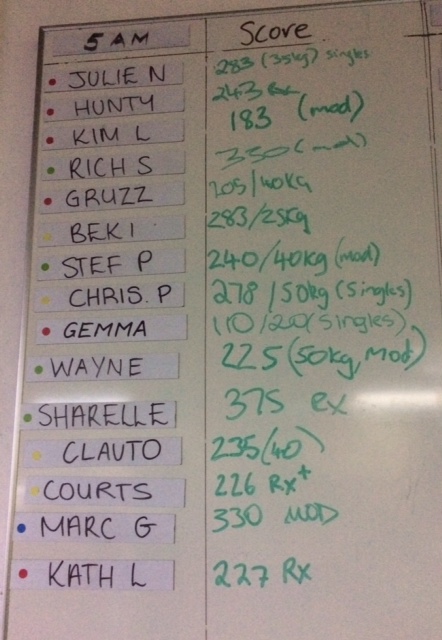 5 AM Score
JULIE N 283 (35kg) singles
HUNTY 243
KIM L 183 (mod)
RICH S 330 (mod)
GRUZZ 205/40KG
BEKI 283/25kg
STEF P 240/40kg (mod)
CHRIS. P 278/50kg (Singles)
GEMMA 110/20(Singles)
WAYNE 225 (50kg, Mod)
SHARELLE 375 ex
CLAUTO 235(40)
COURTS 226 Rx+
MARC G 330 MOD
KATH L 227 Rx